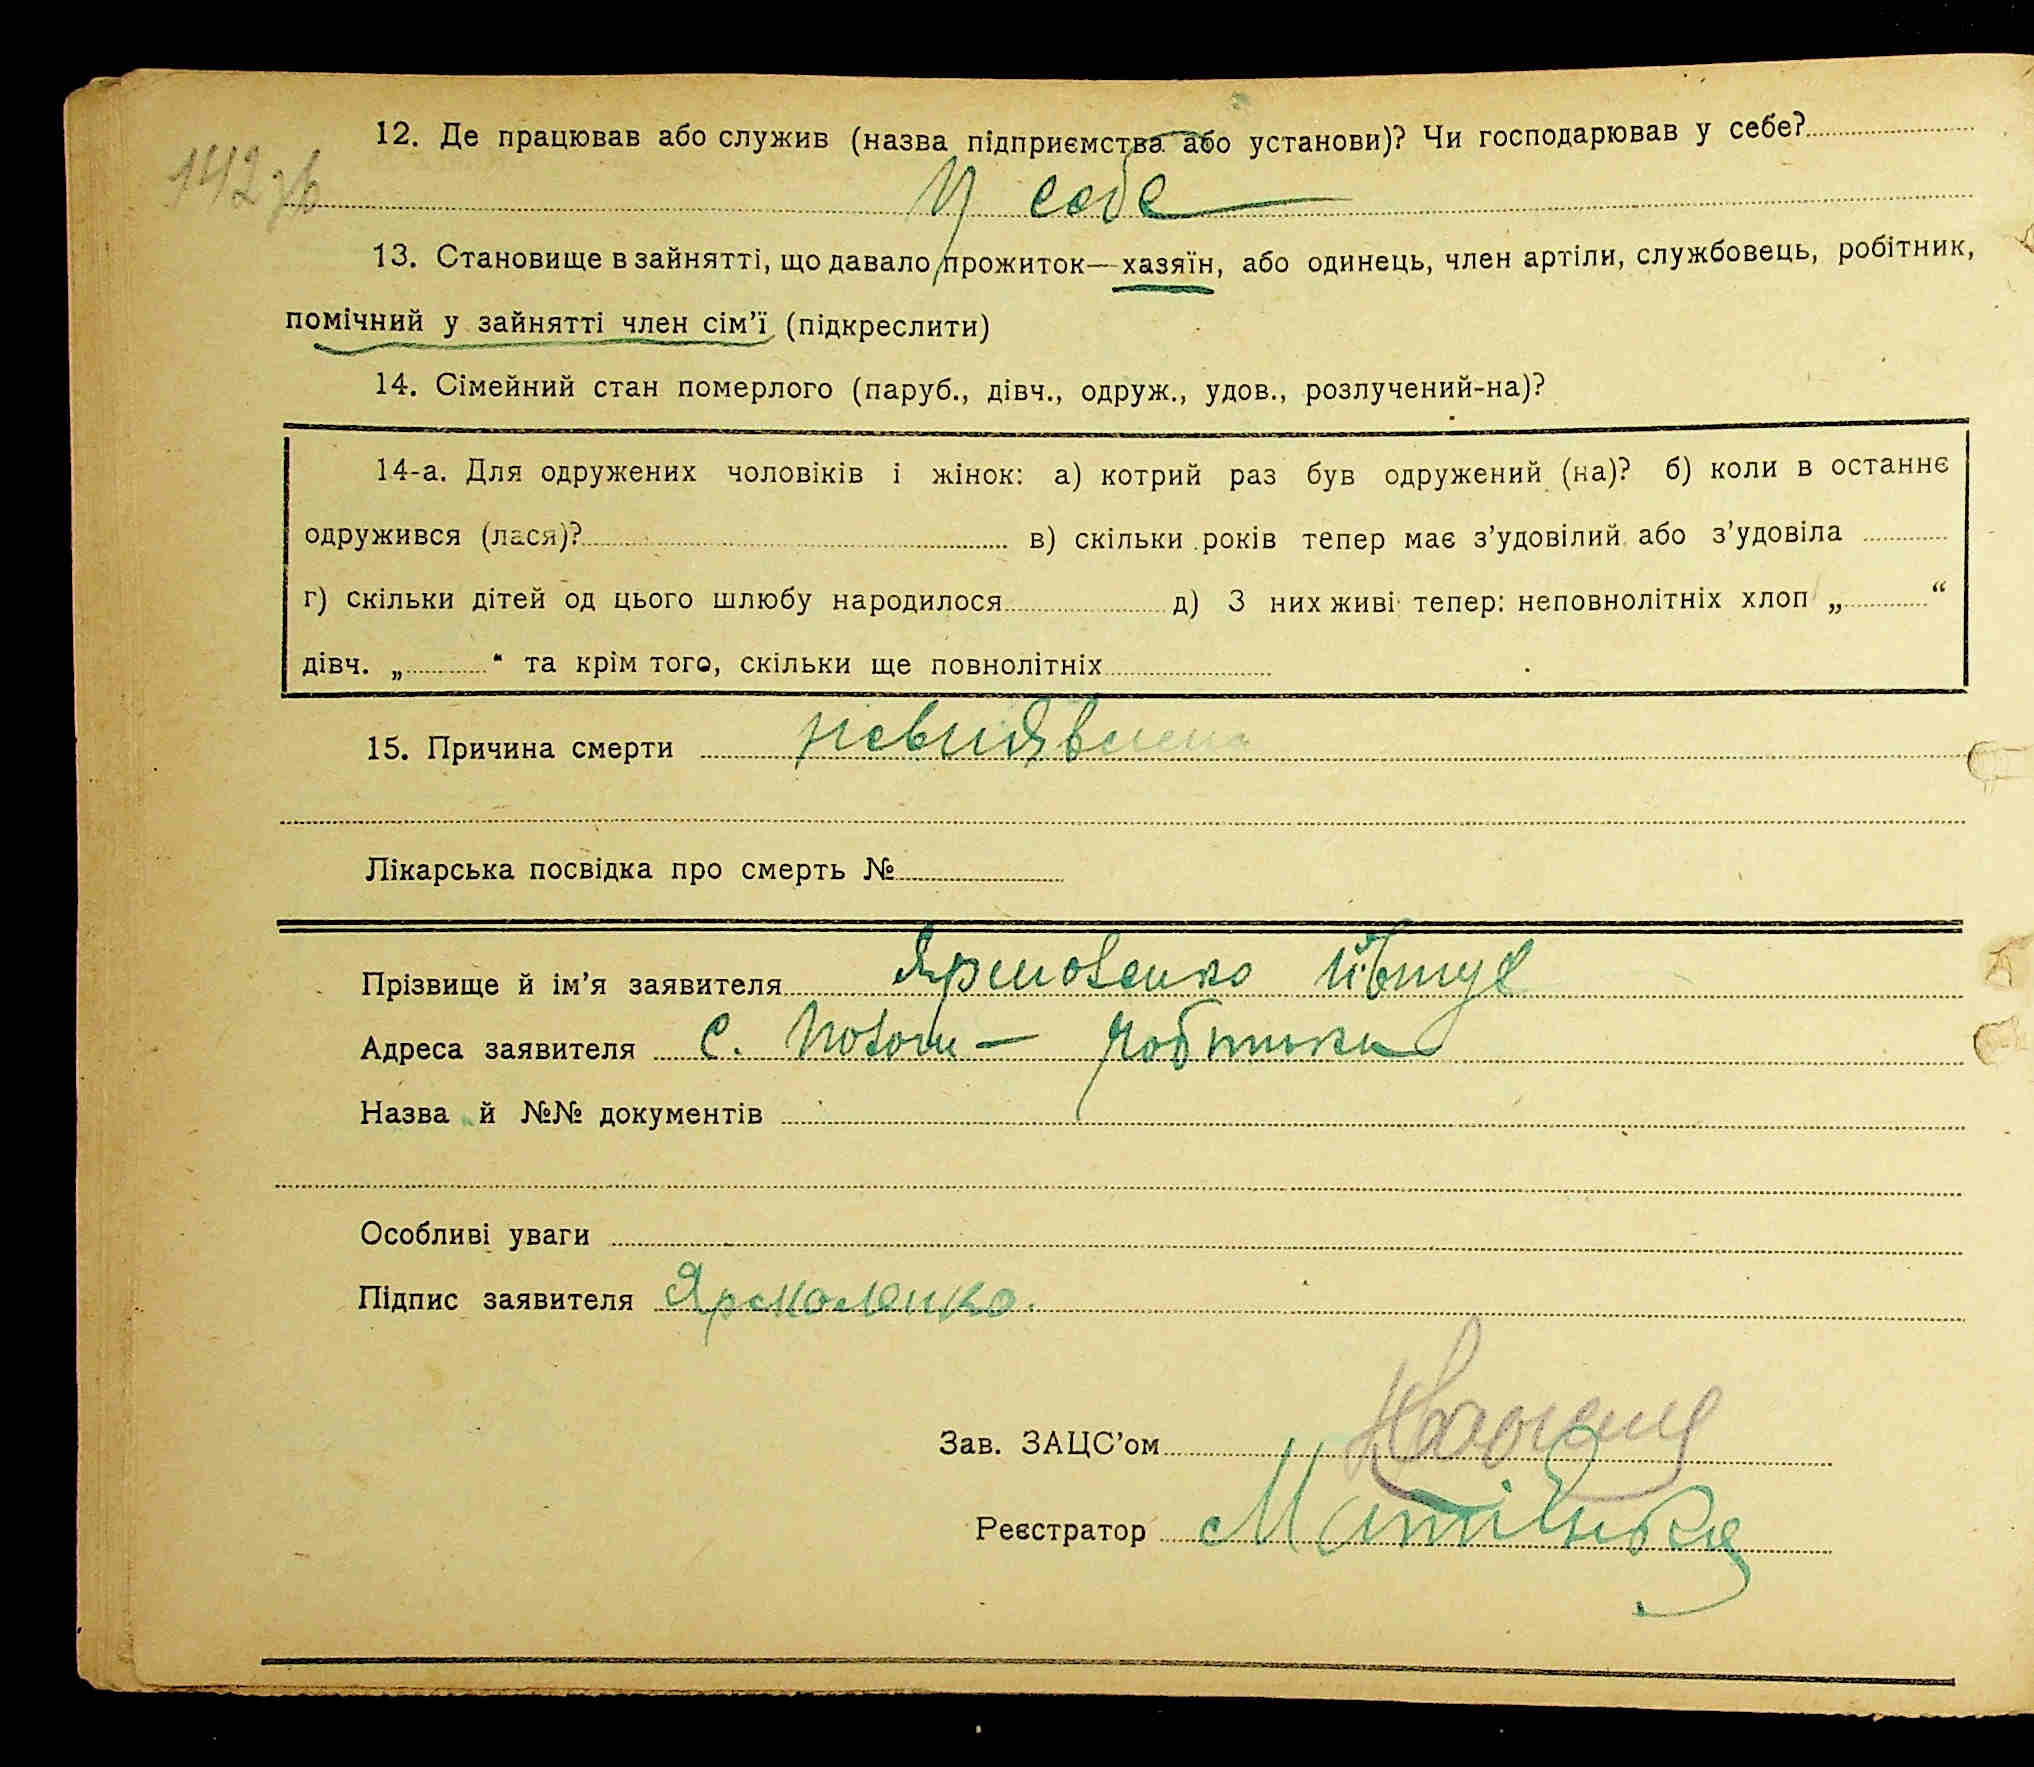 142 зв
12. Де працював або служив (назва підприємства або установи)? Чи господарював у себе?
У себе
13. Становище в зайнятті, що давало прожиток—хазяїн, або одинець, член артіли, службовець, робітник,
помічний у зайнятті член сім’ї (підкреслити)
14. Сімейний стан померлого (паруб., дівч., одруж., удов., розлучений-на)?
14-а. Для одружених чоловіків і жінок: а) котрий раз був одружений (на)? б) коли в останнє
одружився (лася)? в) скільки років тепер має з’удовілий або з’удовіла
г) скільки дітей од цього шлюбу народилося д) З них живі тепер: неповнолітніх хлоп „ “
дівч. „ “ та крім того, скільки ще повнолітніх
15. Причина смерти невиявлена
Лікарська посвідка про смерть №
Прізвище й ім’я заявителя Ярмоленко Йвтух
Адреса заявителя с.
Назва й №№ документів
Особливі уваги
Підпис заявителя Ярмоленко.
Зав. ЗАЦС’ом
Реєстратор